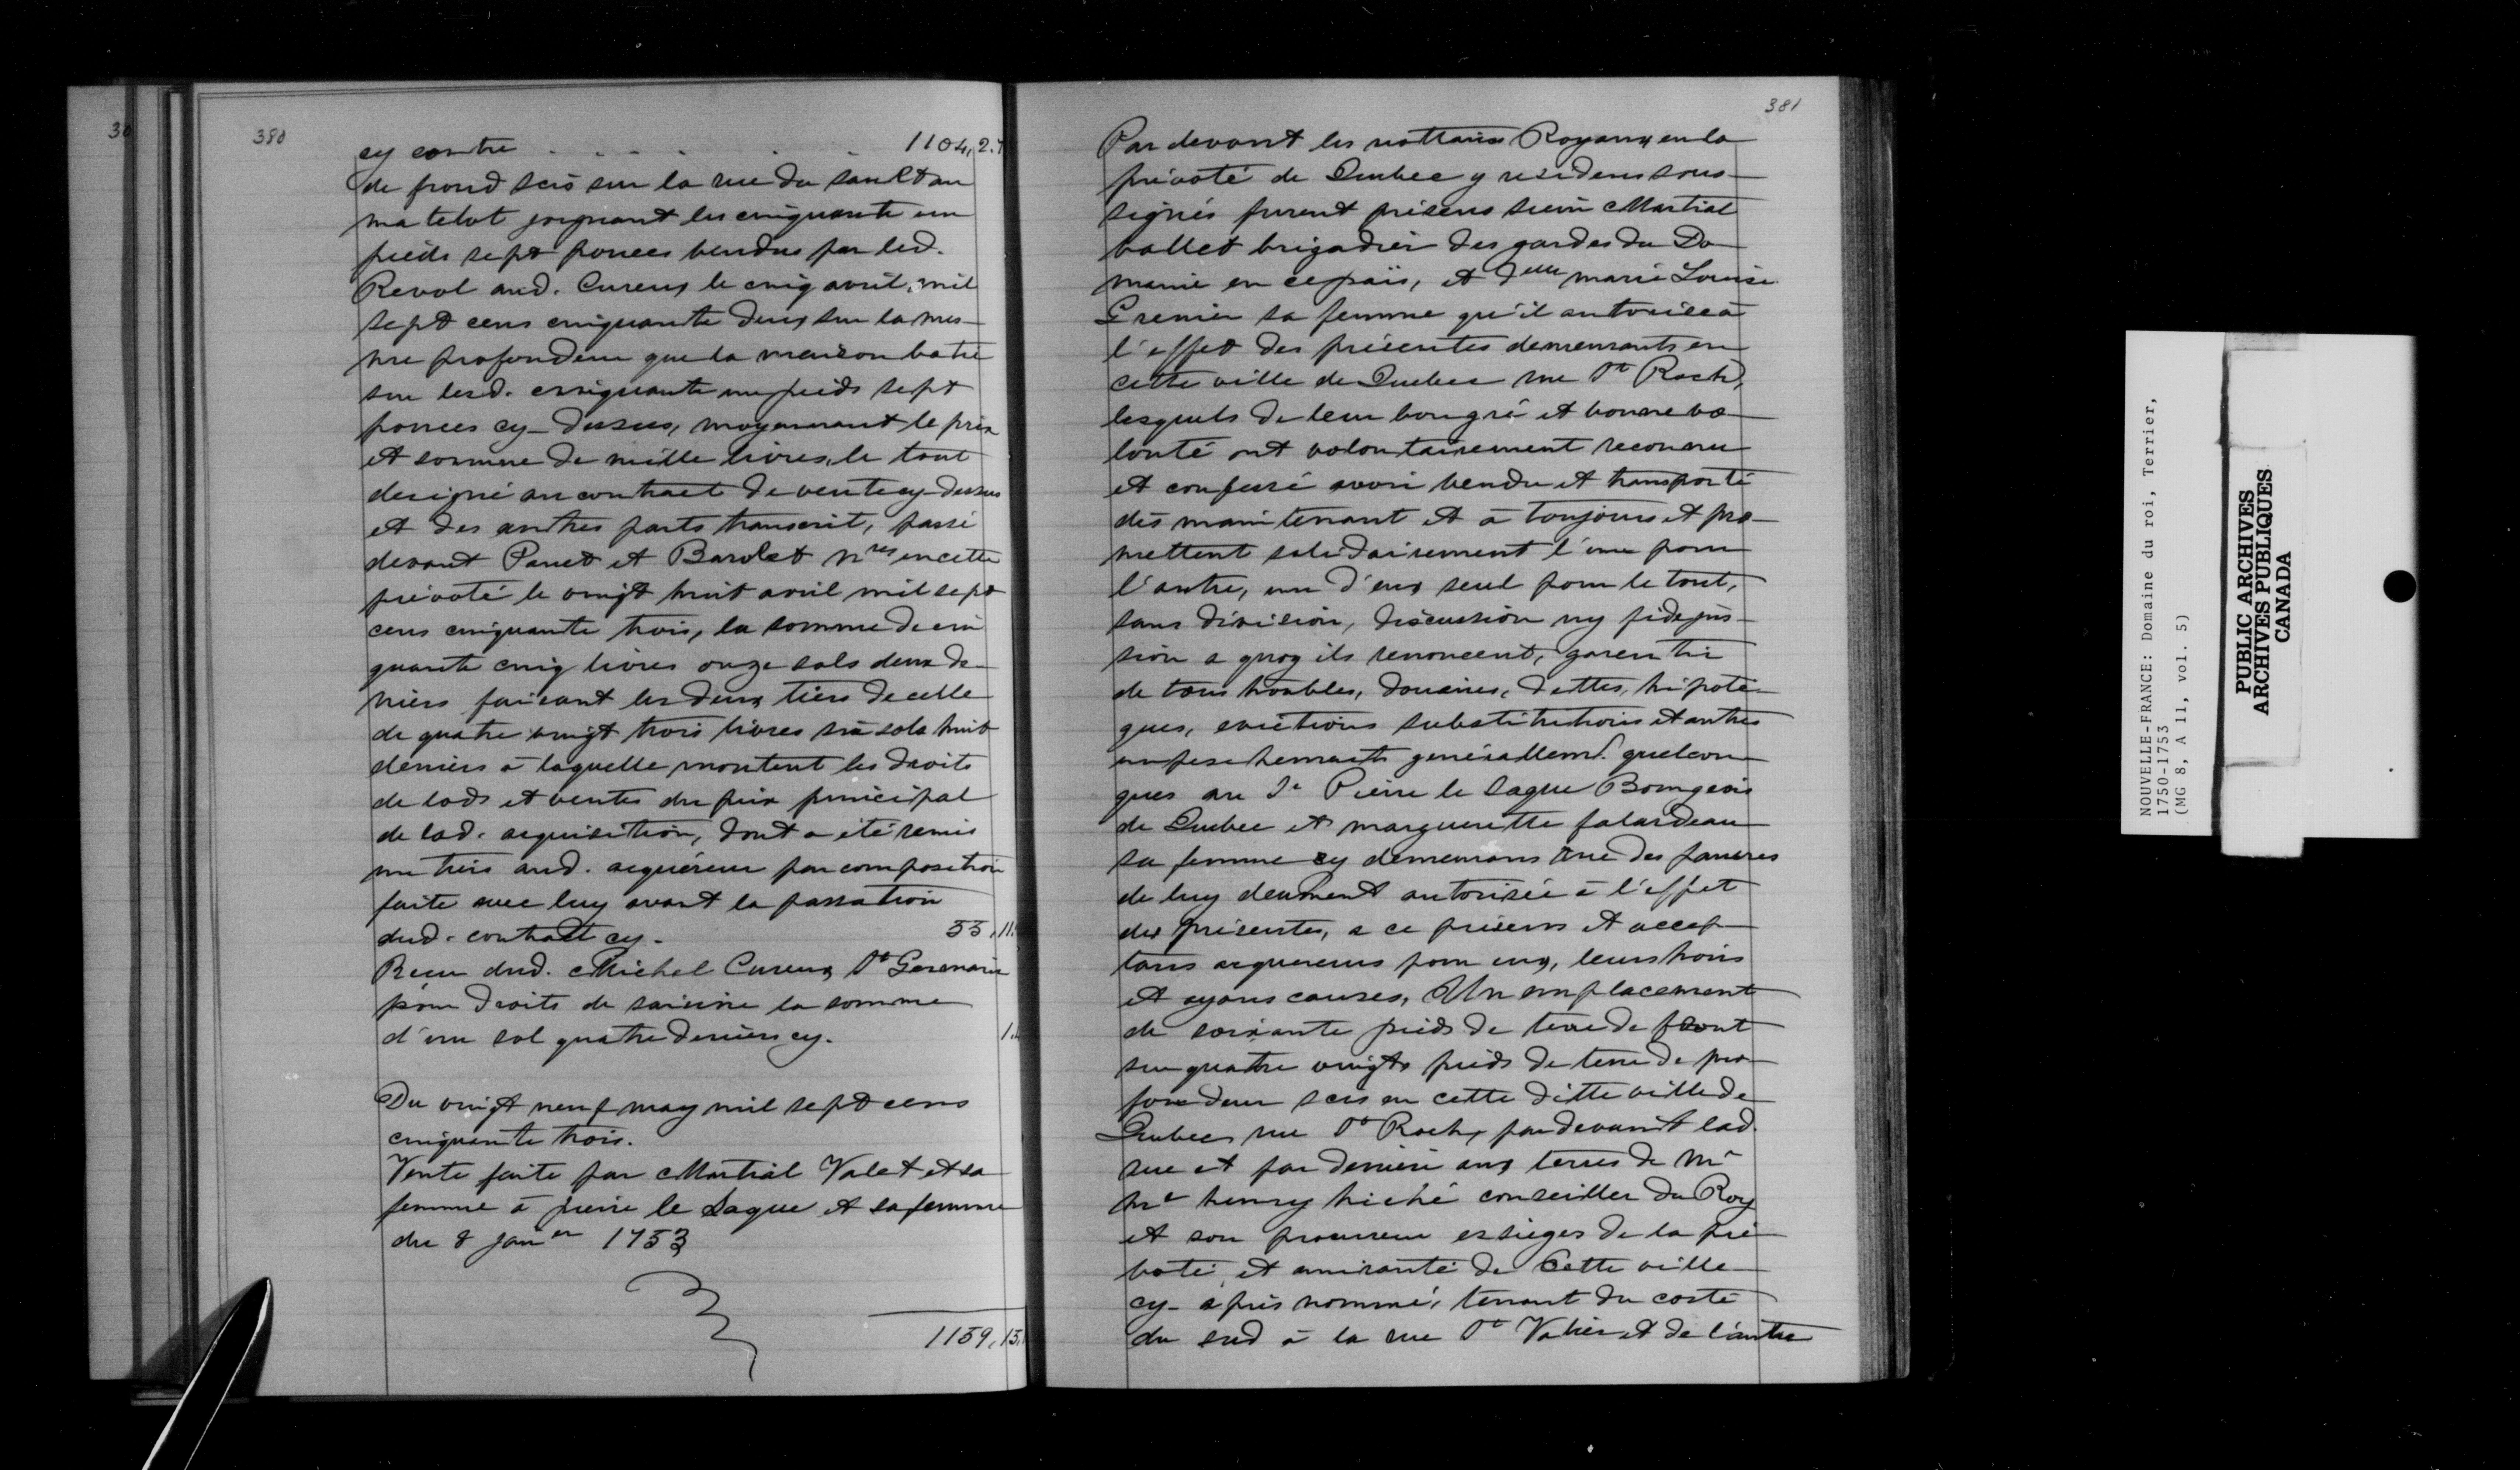 30
380
cy contre . . . . . . 1104, 2.
de frond scis sur la rue du sault au
matelot joignant les cinquante un
pieds sept pouces vendus par led.
Revol aud. Cureux le cinq avril mil
sept cens cinquante deux sur la mes-
me profondeur que la maison batie
sur lesd. cinquante un pieds sept
pouces cy-dessus, moyennant le prix
et somme de mille livres, le tout
designé au contract de vente cy-dessus
et des autres parts transcrit, passé
devant Panet et Barolet nres en cette
prévoté le vingt huit avril mil sept
cens cinquante trois, la somme de cin
quante cinq livres onze sols deux de-
niers faisant les deux tiers de celle
de quatre vingt trois livres six sols huit
deniers à laquelle montent les droits
de lods et ventes du prix principal
de lad. acquisition, dont a été remis
un tiers aud. acquéreur par composition
faite avec luy avant la passation
dud. contract cy. 55, 11.
Receu dud. Michel Cureux St Germain
pour droits de saisine la somme
d'un sol quatre deniers cy. 1.
Du vingt neuf may mil sept cens
cinquante trois.
Vente faite par Martial Valet et sa
femme à pierre le Sague et sa femme
du 8 janer 1753
1159, 15.
381
Par devant les nottaires Royaux en la
prévoté de Quebec y residens sous-
signés furent présens sieur Martial
vallet brigadier des gardes du Do-
maine en ce païs, et delle marie Louise
Grenier sa femme qu'il autorise à
l'effet des présentes demeurants en
cette ville de Quebec rue St Roch,
lesquels de leur bon gré et bonne vo-
lonté ont volontairement reconnu
et confessé avoir vendu et transporté
dès maintenant et à toujours et pro-
mettent solidairement l'une pour
l'autre, un d'eux seul pour le tout,
sans division, discussion ny fidejus-
sion a quoy ils renoncent, garentir
de tous troubles, douaires, dettes, hipote-
ques, evictions substitutions et autres
empeschements generallemt. quelcon-
ques au Sr Pierre le Sague Bourgeois
de Quebec et margueritte falardeau
sa femme cy demeurans rue des fauvres
de luy deument autorisée à l'effet
des présentes, a ce présens et accep-
tans acquereurs pour eux, leurs hoirs
et ayans causes, Un emplacement
de soixante pieds de terre de front
sur quatre vingts pieds de terre de pro-
fondeur scis en cette ditte ville de
Quebec rue St Roch, par devant lad.
rue et par derriere aux terres de Mr
Me henry hiché conseiller du Roy
et son procureur es sieges de la pré-
voté, et amirauté de Cette ville
cy-après nommé, tenant du costé
du sud à la rue St Valier et de l'autre
NOUVELLE-FRANCE: Domaine du roi, Terrier,
1750-1753
(MG 8, A 11, vol. 5)
PUBLIC ARCHIVES
ARCHIVES PUBLIQUES
CANADA